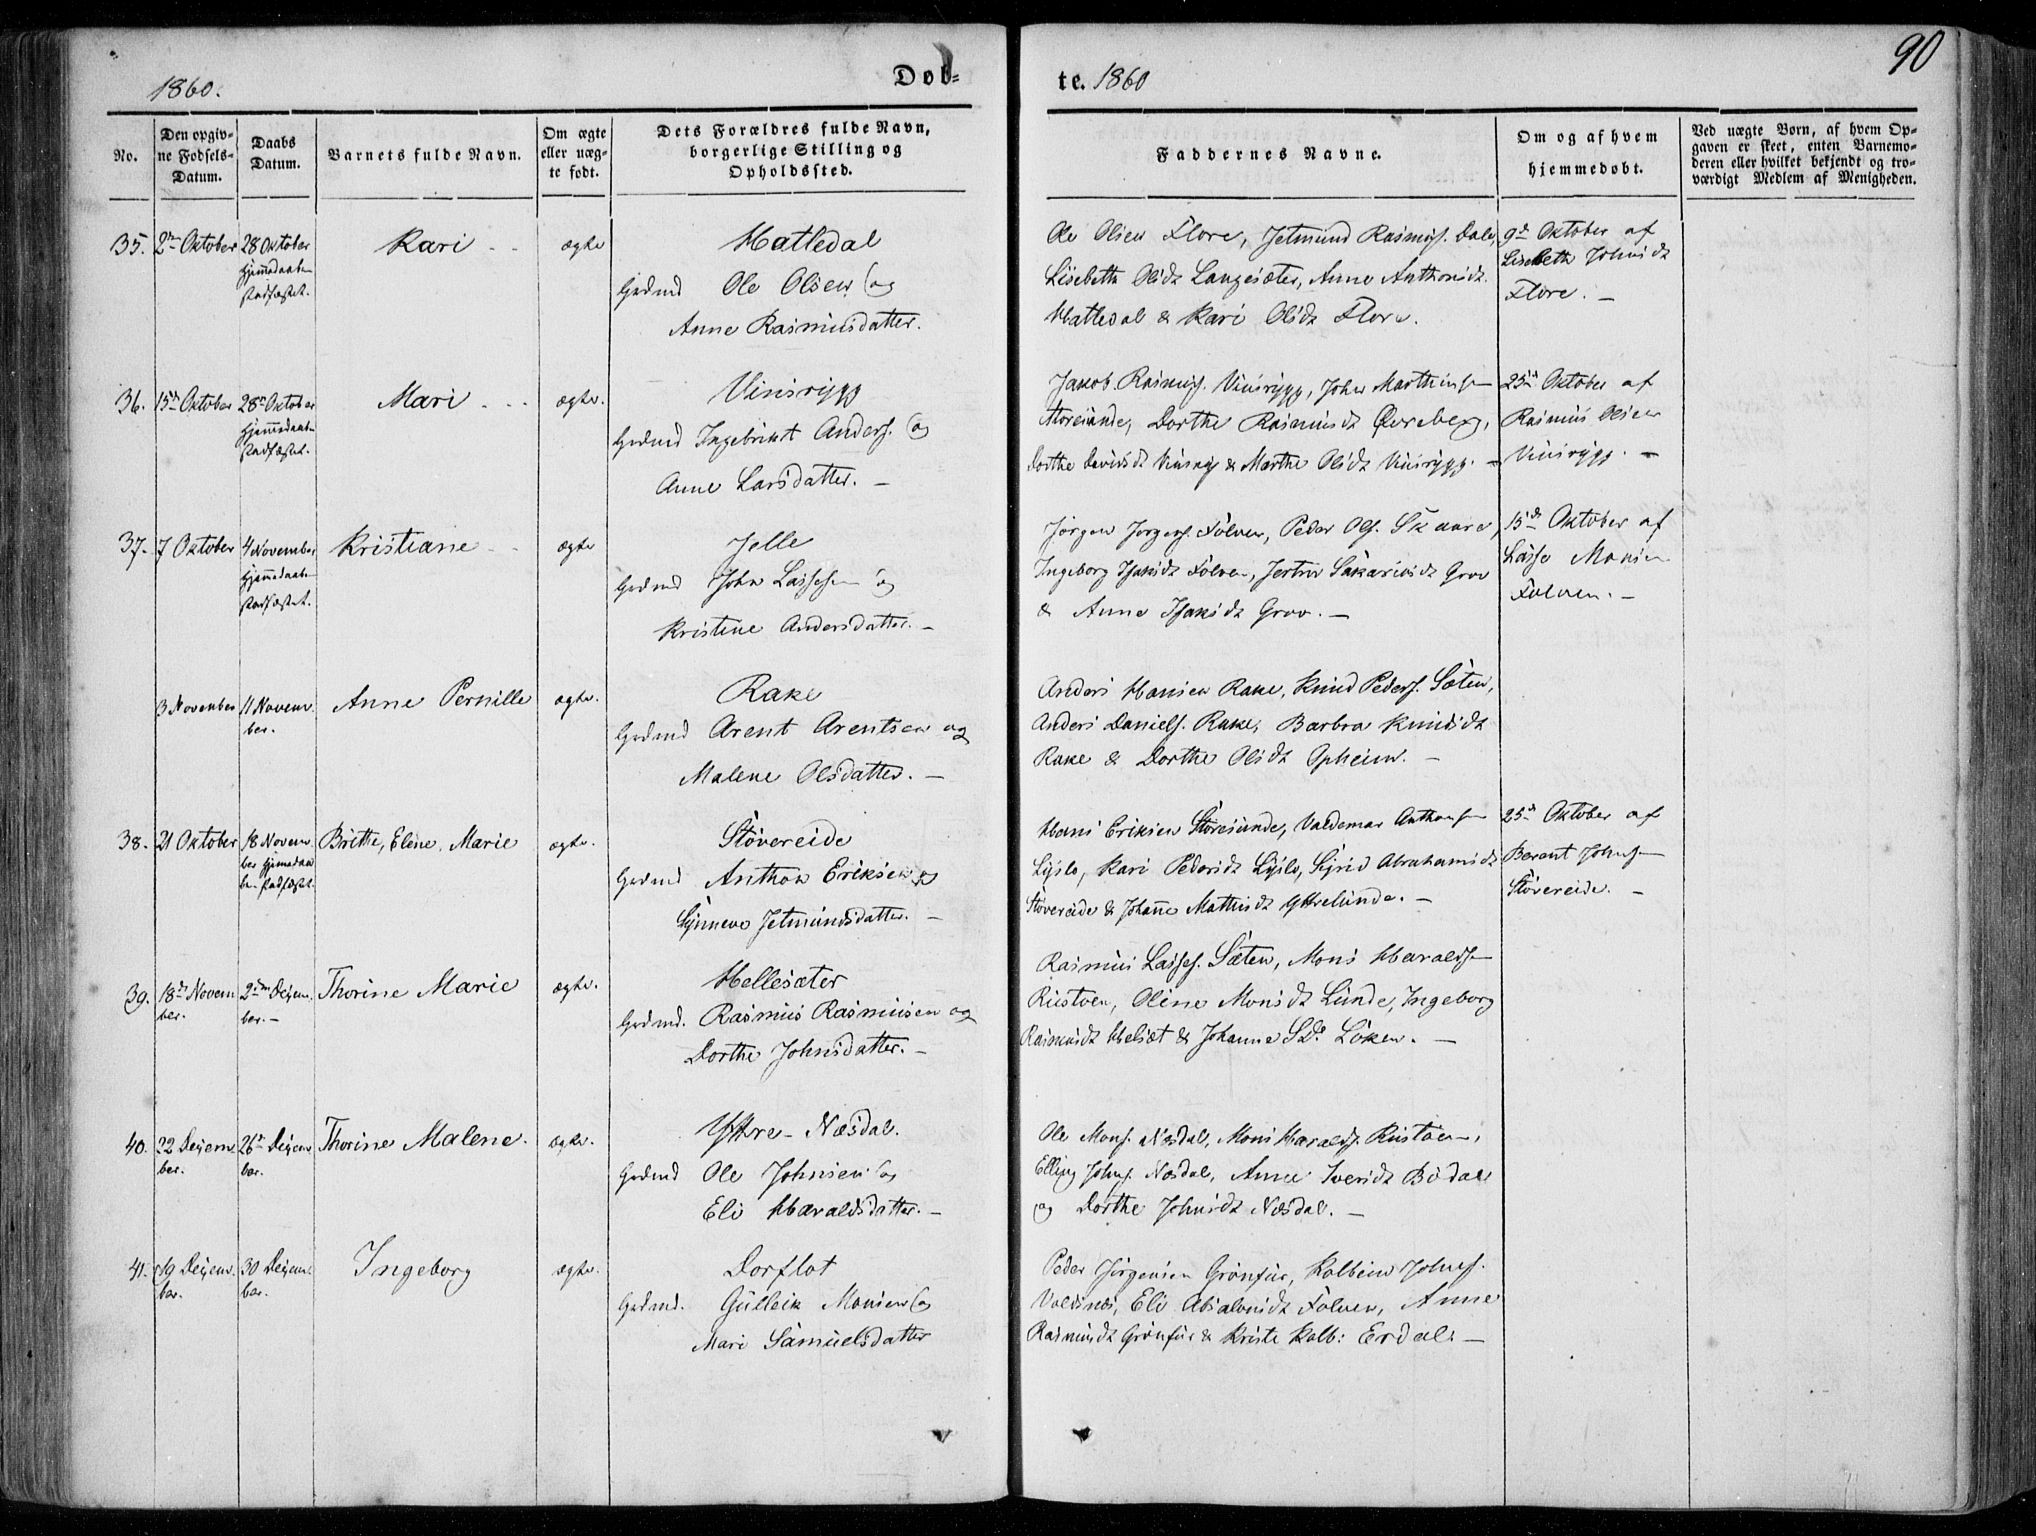 90
1860.
Døb=
te. 1860
No.
Den opgiv=
ne Fødsels=
Datum.
Daabs
Datum.
Barnets fulde Navn.
Om ægte
eller uæg=
te født.
Dets Forældres fulde Navn,
borgerlige Stilling og
Opholdssted.
Faddernes Navne.
Om og af hvem
hjemmedøbt.
Ved uægte Børn, af hvem Op=
gaven er skeet, enten Barnemo=
deren eller hvilket bekjendt og tro=
værdigt Medlem af Menigheden.
35. 2den Oktober 28 Oktober
Hjemmedaaben
stadfæstet.
Kari
ægte
Hatledal
Grdmd Ole Olsen og
Anne Rasmusdatter.
Ole Olsen Flore, Jetmund Rasmuss. Dale,
Lisebeth Olsdt Langesæter, Anne Anthonsdt
Hatledal & Kari Olsdt Flore.
9de Oktober af
Lisebeth Johnsdt
Flore. –
36. 15de Oktober 28de Oktober
Hjemmedaaben
stadfæstet.
Mari
ægte.
Vinsrygg
Grdmd Ingebrikt Anders. og
Anne Larsdatter. –
Jakob Rasmuss. Vinsrygg, John Marthinsen
Storesunde, Dorthe Rasmusdt Øvreberg,
Dorthe Davidsdt Vinsryg & Marthe Olsdt Vinsrygg. –
25de Oktober af
Rasmus Olsen
Vinsrygg. –
37. 7 Oktober 4 November
Hjemmedaaben
stadfæstet.
Kristiane
ægte
Jelle
Grdmd John Lassesen og
Kristine Andersdatter. –
Jørgen Jørgens. Folven, Peder Ols. Skaare,
Ingeborg Isaksdt Folven, Jertru Sakariasdt Grov
& Anne Isaksdt Grov. –
15de Oktober af
Lasse Monsen
Folven. –
3 November 11 Novem
ber.
Anne Pernille
ægte.
Rake
Grdmd Arent Arentsen og
Malene Olsdatter. –
Anders Hansen Rake, Knud Peders. Sæten,
Anders Daniels. Rake, Barbra Knudsdt
Rake & Dorthe Olsdt Opheim. –
38. 21 Oktober 18 Novem
ber Hjemmedaa
ben stadfæstet.
Brithe, Eline, Marie
ægte.
Støvereide
Grdmd Anthon Eriksen og
Synneve Jetmundsdatter. –
Hans Eriksen Storesunde, Valdemar Anthonsen
Lyslo, Kari Pedersdt Lyslo, Sigrid Abrahamsdt
Støvereide & Johanne Mathisdt Ytrelunde. –
25de Oktober af
Berent Johnsen
Støvereide. –
39. 18de Novem
ber.
2den Dezem
ber. –
Thorine Marie
ægte.
Hellesæter
Grdmd. Rasmus Rasmusen og
Dorthe Johnsdatter. –
Rasmus Lasses. Sæten, Mons Haraldsen
Rustøen, Oline Monsdt Lunde, Ingeborg
Rasmusdt Helsæt & Johanne Sdr Løken. –
40. 22 Dezem
ber.
26de Dezem
ber.
Thorine Malene.
ægte.
Yttre – Næsdal.
Grdmd Ole Johnsen og
Eli Haraldsdatter. –
Ole Mons. Næsdal, Mons Haralds. Rustøen,
Elling Johns. Næsdal, Anne Iversdt Bødal
og Dorthe Johnsdt Næsdal. –
41. 19 Dezem
ber.
30 Dezem
ber.
Ingeborg
ægte.
Dorflot
Grdmd. Gulleik Monsen og
Mari Samuelsdatter
Peder Jørgensen Grønfur, Kolbein Johns.
Voldsnes, Eli Absalonsdt Folven, Anne
Rasmusdt Grønfur & Kriste Kolb: Erdal. –